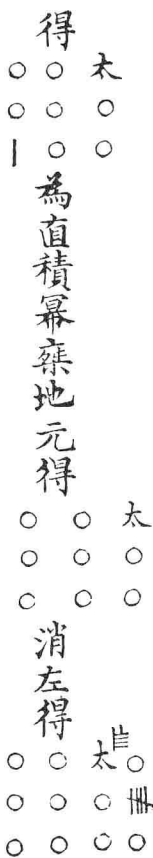 得
太○○
○○○
○○|
為直積冪椉地元得
太○○
○○○
○○○
消左得
太○○
○○○
○○○